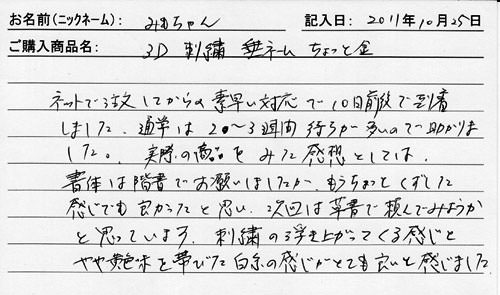 お名前(ニックネーム): みぉちゃん 記入日: 2011年10月25日
ご購入商品名: 3D 刺繍 ネーム ちょっと金
ネットで注文してからの素早い対応で10日前後で到着
しました。通常は2〜3週間待ちが多いので助かりま
した。実際の商品をみた感想としては、
書体は階書でお願いしましたが、もうちょっとくずした
感じでも良かったと思い、次回は草書で頼んでみようか
と思っています。刺繍の浮き上がってくる感じと
やや黄色味を帯びた白糸の感じがとても良いと感じました